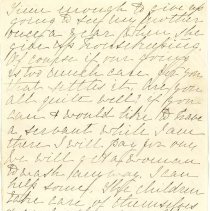 I am enough to give up
going to see my brother
once a year when she
give up housekeeping.
Of course if our going
is too much care for you
that settles it. Are you
all quite well? if you
can & would like to have
a servant while I am
there I will pay for one
we will get a woman
to wash any way. I can
help some. The children
take care of themselves